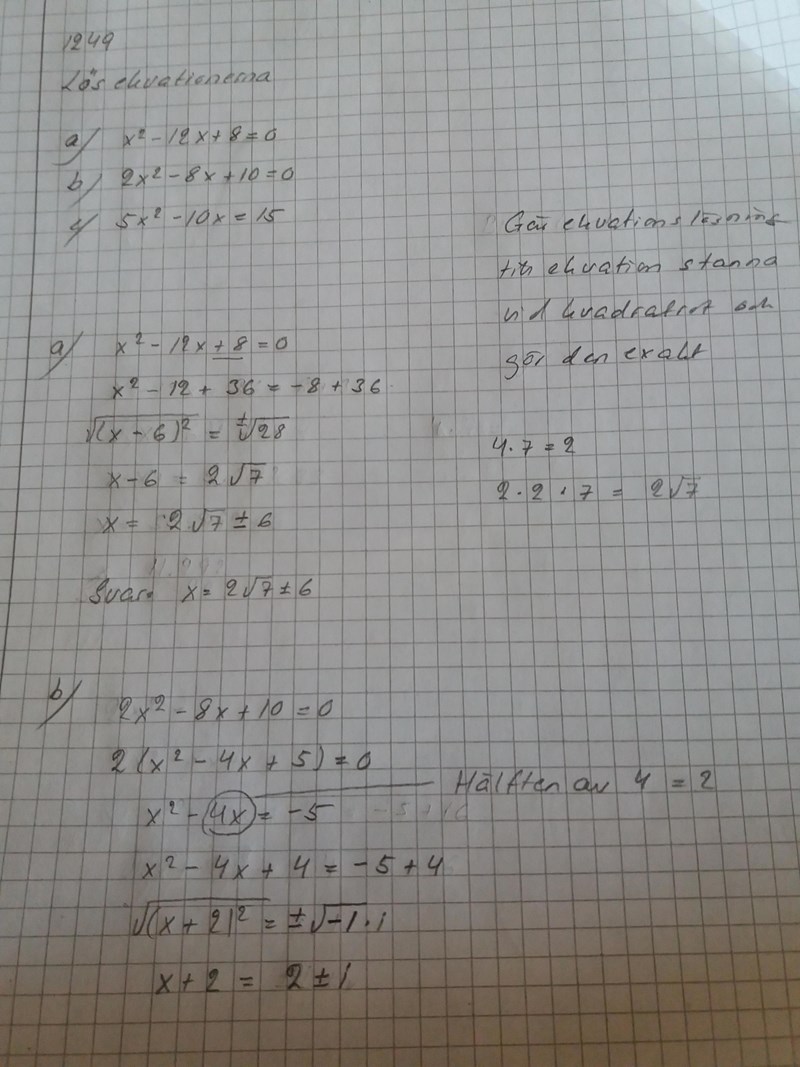 1249
Lös ekvationerna
a) x² - 12x + 8 = 0
b) 2x² - 8x + 10 = 0
c) 5x² - 10x = 15
Gör ekvationslösning
till ekvation stanna
vid kvadratrot och
gör den exakt
a) x² - 12x + 8 = 0
x² - 12 + 36 = -8 + 36
√(x - 6)² = ±√28
x - 6 = 2√7
x = 2√7 ± 6
4 · 7 = 2
2 · 2 · 7 = 2√7
Svar: x = 2√7 ± 6
b) 2x² - 8x + 10 = 0
2(x² - 4x + 5) = 0
x² - 4x = -5
Hälften av 4 = 2
x² - 4x + 4 = -5 + 4
√(x + 2)² = ±√-1 · i
x + 2 = 2 ± i